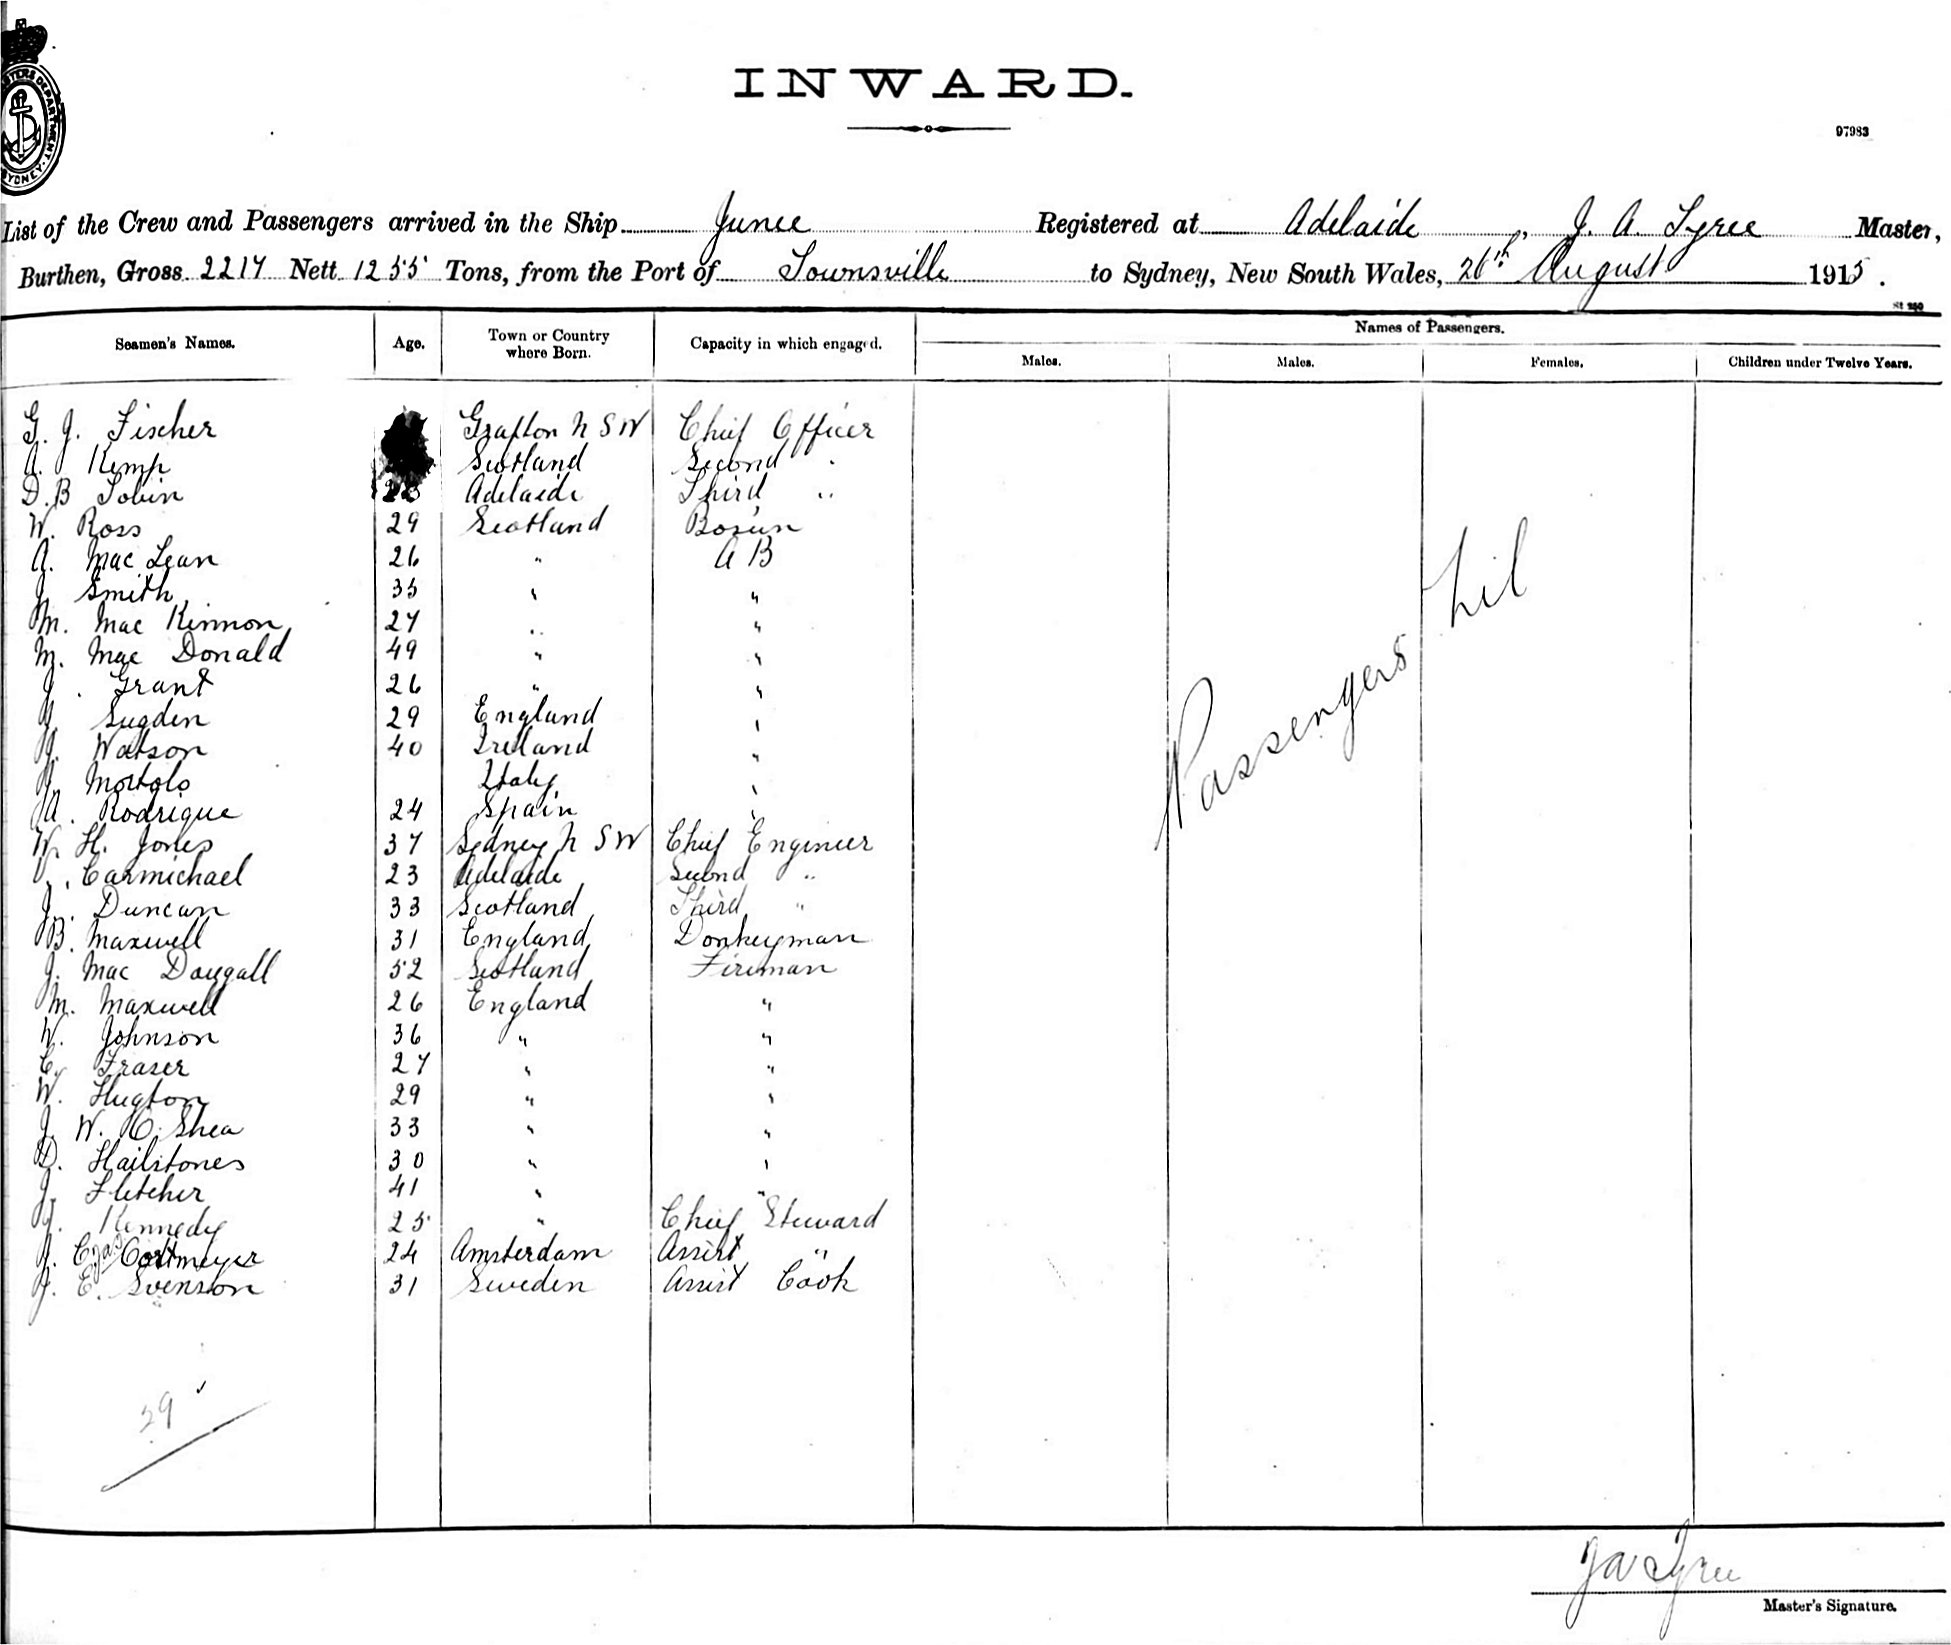 INWARD.
97983
MASTERS DEPARTMENT. SYDNEY
List of the Crew and Passengers arrived in the Ship Junee Registered at Adelaide, J. A. Tyree Master,
Burthen, Gross 2217 Nett 1255 Tons, from the Port of Townsville to Sydney, New South Wales, 26th August 1915.
Seamen's Names. Age. Town or Country where Born. Capacity in which engaged. Names of Passengers.
Males. Males. Females. Children under Twelve Years.
G. J. Fischer Grafton N S W Chief Officer
A. Kemp Scotland Second "
D. B Tobin Adelaide Third "
W. Ross 29 Scotland Bosun
A. Mac Lean 26 " A B
J. Smith 35 " "
M. Mac Kinnon 27 " "
M. Mac Donald 49 " "
J. Grant 26 " "
Sugden 29 England "
J. Watson 40 Ireland "
Italy "
A. Rodrigue 24 Spain "
W. H. Jones 37 Sydney N S W Chief Engineer
Carmichael 23 Adelaide Second "
J. Duncan 33 Scotland Third "
B. Maxwell 31 England Donkeyman
J. Mac Dougall 52 Scotland Fireman
M. Maxwell 26 England "
W. Johnson 36 " "
C. Fraser 27 " "
W. Hugton 29 " "
J. W. O'Shea 33 " "
D. Hailstones 30 " "
J. Fletcher 41 " "
J. Kennedy 25 " Chief Steward
J. C. Cortmeyer 24 Amsterdam Assist "
J. E. Svenson 31 Sweden Assist Cook
Passengers Nil
29
J A Tyree
Master's Signature.